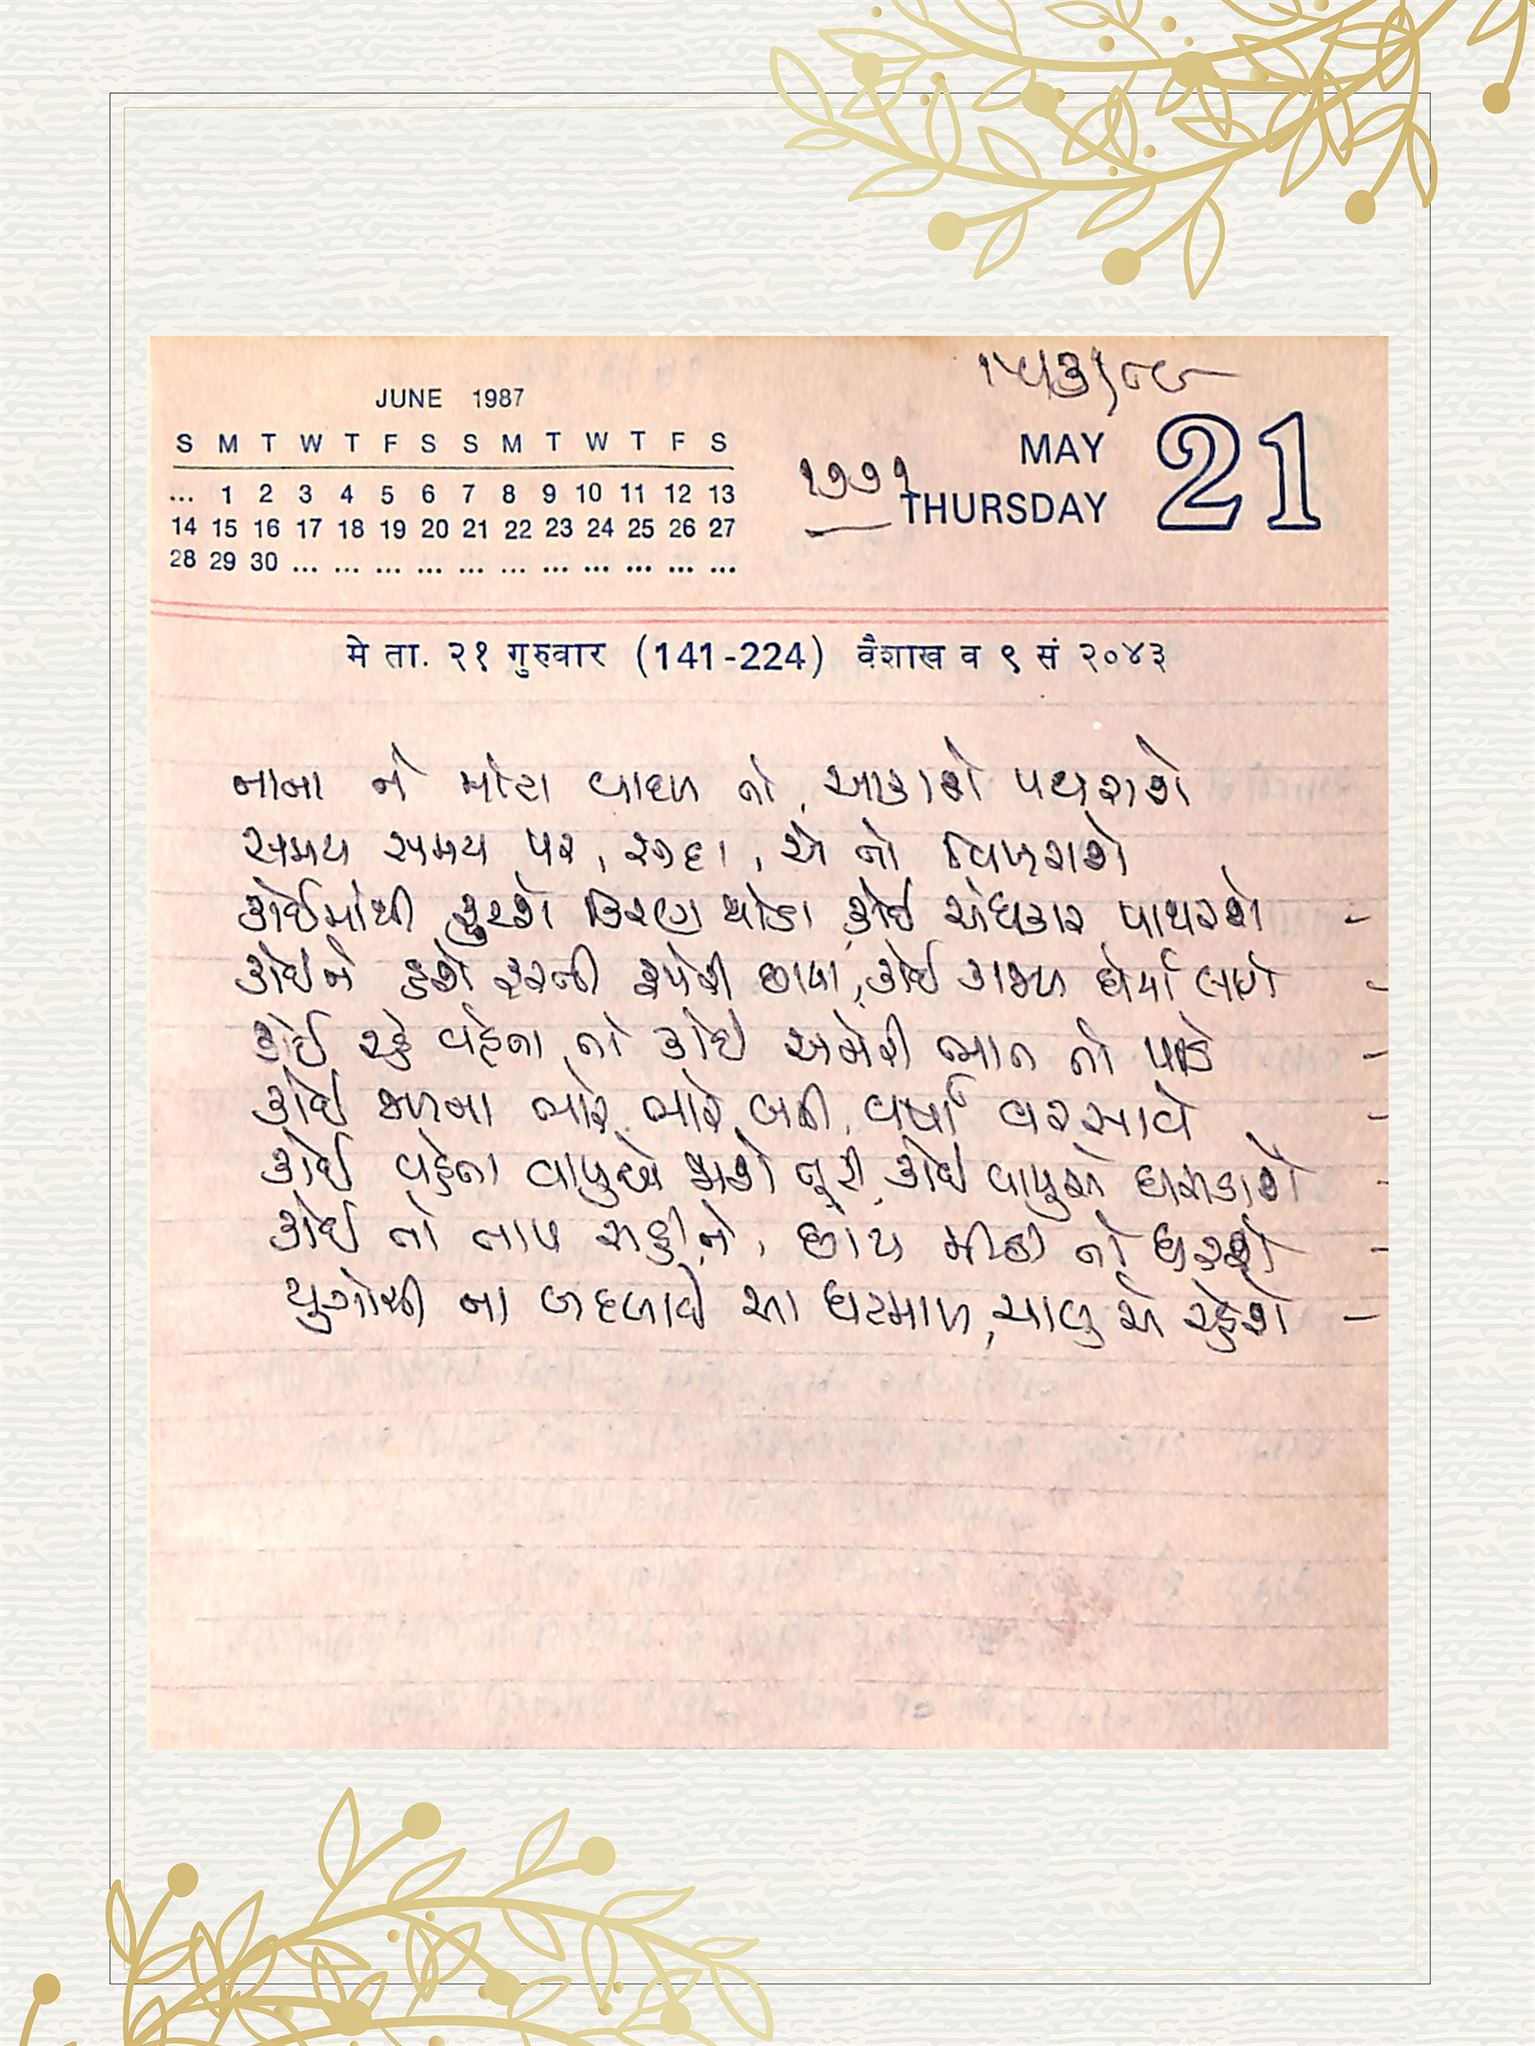 JUNE 1987
S M T W T F S S M T W T F S
... 1 2 3 4 5 6 7 8 9 10 11 12 13
14 15 16 17 18 19 20 21 22 23 24 25 26 27
28 29 30 ... ... ... ... ... ... ... ... ... ... ...
MAY 21
THURSDAY
मे ता. २१ गुरुवार (141-224) वैशाख व ९ सं २०४३
નાના ને મોટા વાદળ તો, આકાશે પથરાશે
સમય સમય પર, સદા, એ તો વિખરાશે
કોઈમાંથી ફુટશે કિરણ થોડા કોઈ અંધકાર પાથરશે -
કોઈને હશે ફરતી રૂપેરી છાયા, કોઈ કાજળ ઘેર્યા લાગે -
કોઈ રહે વહેતા, તો કોઈ અનેરી ભાત તો પાડે -
કોઈ જળના ભારે ભારે બની, વર્ષા વરસાવે -
કોઈ વહેતા વાયુએ જાશે તૂટી, કોઈ વાયુએ ઘસડાશે -
કોઈ તો તાપ સહીને, છાંય મીઠી તો ધરશે -
યુગોથી ના બદલાયે આ ઘટમાળ, ચાલુ એ રહેશે -